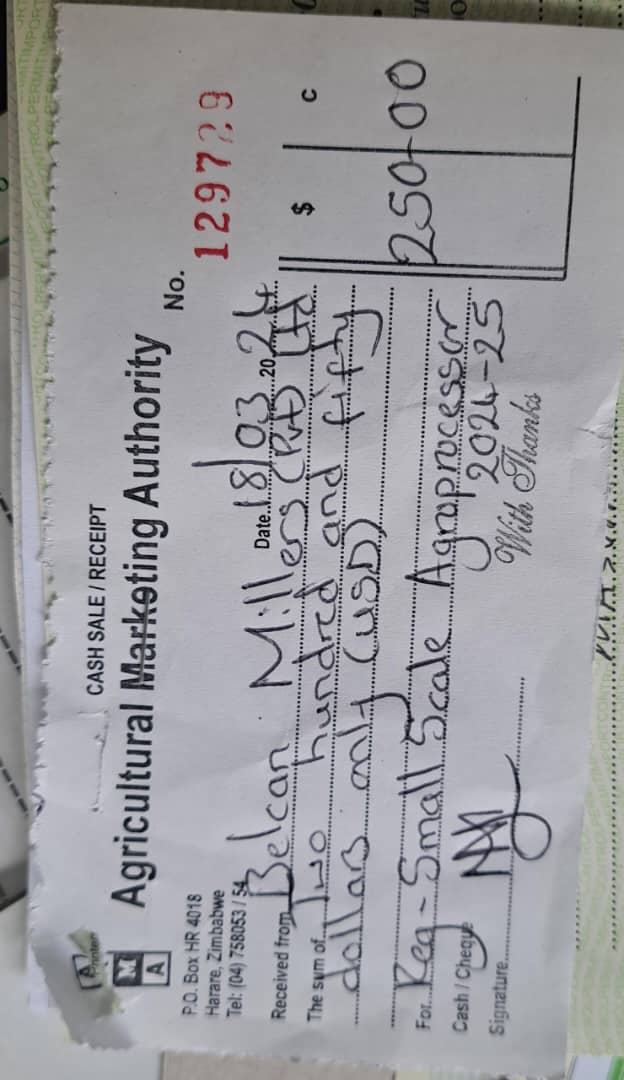 CASH SALE / RECEIPT
A
M
A
Agricultural Marketing Authority
P.O. Box HR 4018
Harare, Zimbabwe
Tel: (04) 758053 / 54
No. 129729
Date 18/03 20 24
Received from Belcan Millers (Pvt) Ltd
$ c
The sum of Two hundred and fifty
dollars only (USD)
250-00
For Reg - Small Scale Agroprocessor
2024-25
Cash / Cheque
With Thanks
Signature